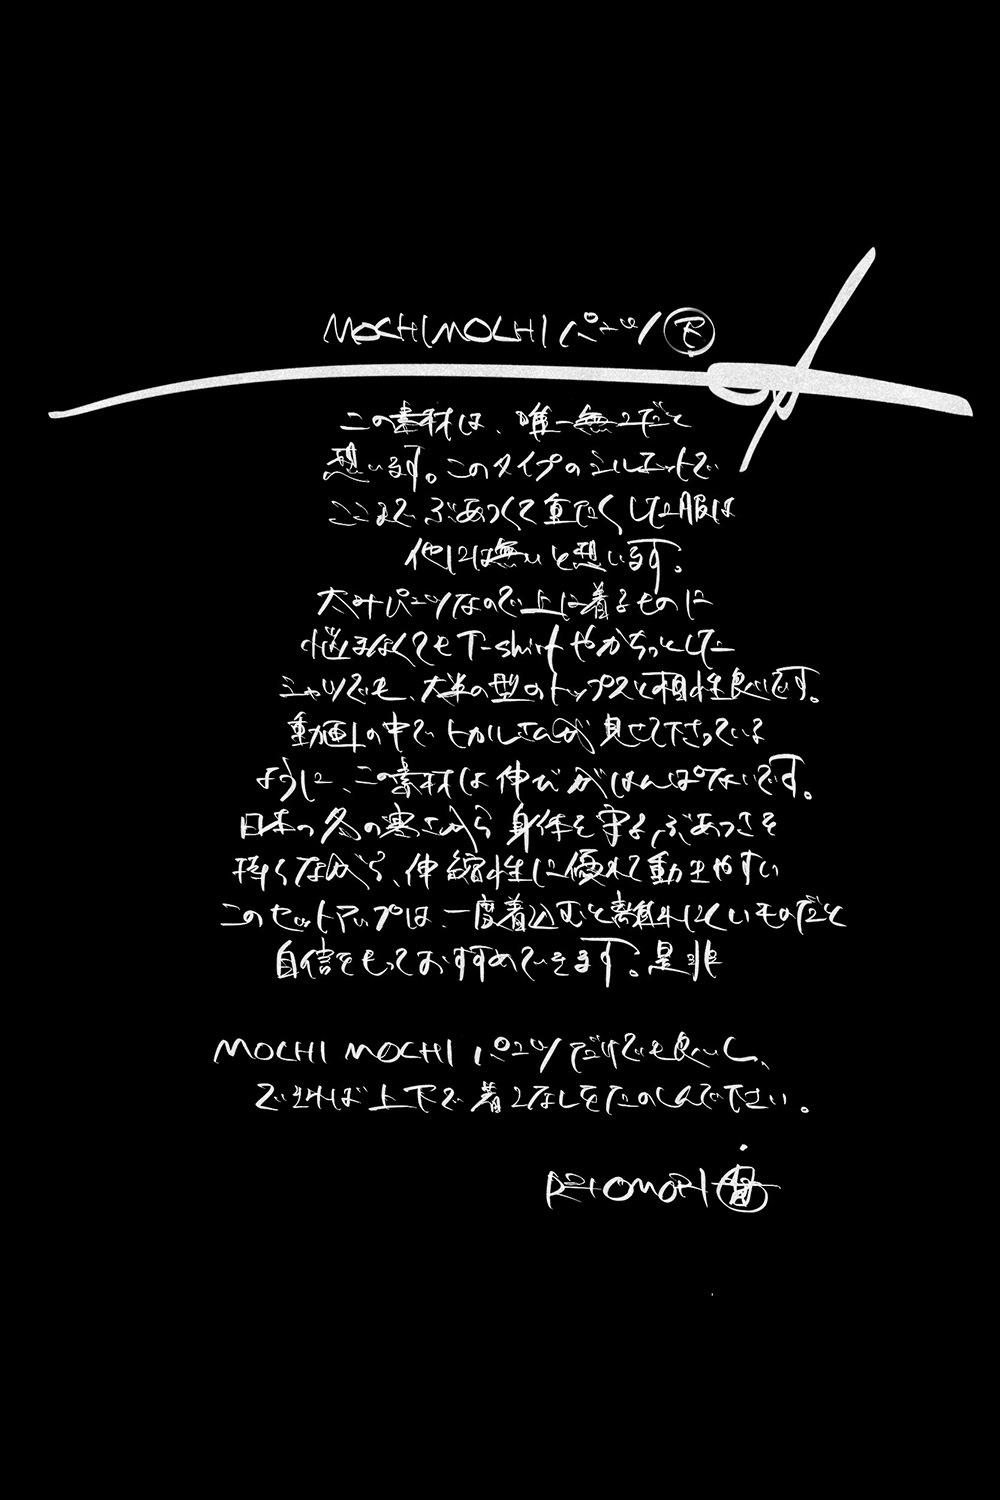 MOCHIMOCHIパンツ Ⓡ
この素材は、唯一無二だと
想います。このタイプのシルエットで
ここまでぶあつくて重たくした服は
他には無いと想います。
太めパンツなので上に着るものに
悩まなくてもT-shirtやかちっとした
シャツでも、大半の型のトップスと相性良いです。
動画の中でヒカルさんが見せて下さっている
ように、この素材は伸びがはんぱないです。
日本の冬の寒さから身体を守るぶあつさを
持ちながら、伸縮性に優れて動きやすい
このセットアップは、一度着込むと離れにくいものだと
自信をもっておすすめできます。是非
MOCHI MOCHI パンツだけでも良いし、
できれば上下で着こなしをたのしんで下さい。